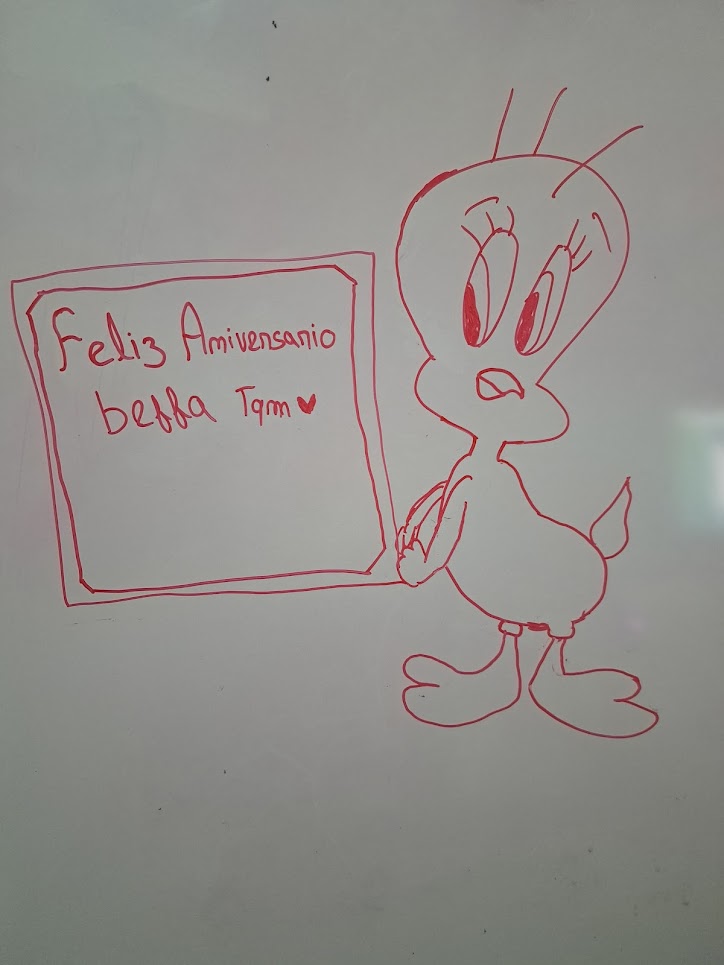 Feliz Aniversario
beffa Tqm ♥